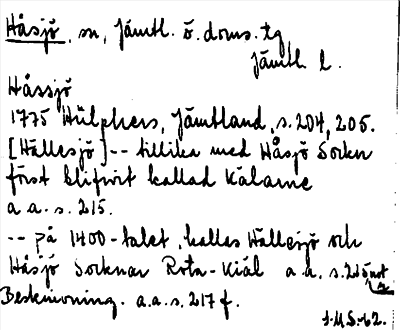 Håsjö, sn, Jämtl. ö. doms. tg
Jämtl. l.
Håssjö
1775 Hülphers, Jämtland, s. 204, 205.
[Hällesjö] -- tillika med Håsjö Sockn
först blifvit kallad Kälarne
a. a. s. 215.
-- på 1400-talet, kallas Hällesjö och
Håsjö Socknar Rota-Kiäl a. a. s. 215
Beskrivning. a. a. s. 217 f.
J.M.S. 62.